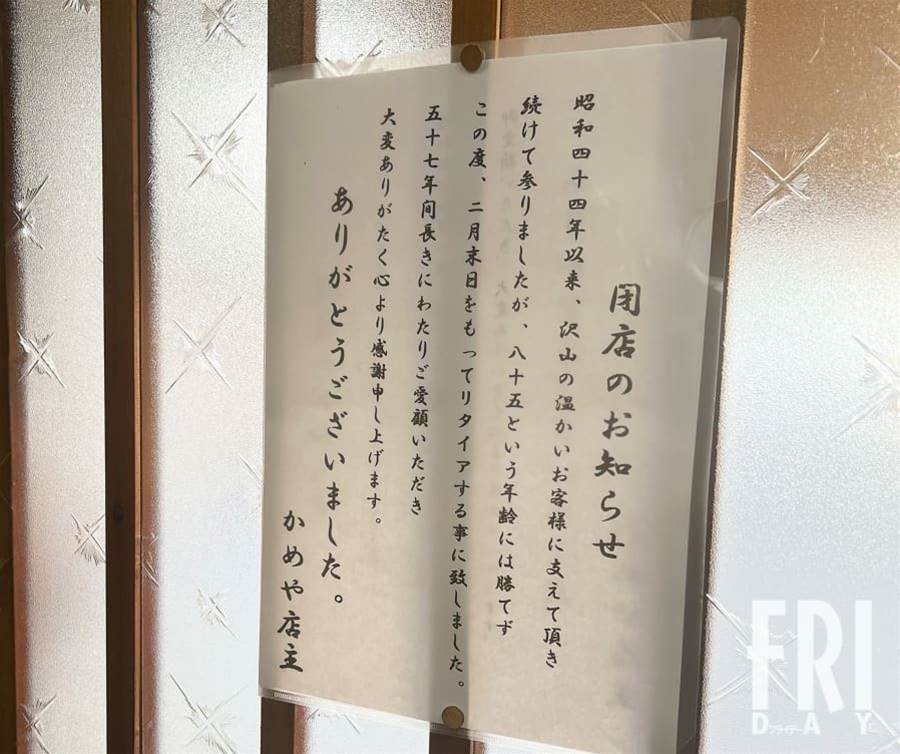 閉店のお知らせ
昭和四十四年以来、沢山の温かいお客様に支えて頂き
続けて参りましたが、八十五という年齢には勝てず
この度、二月末日をもってリタイアする事に致しました。
五十七年間長きにわたりご愛顧いただき
大変ありがたく心より感謝申し上げます。
ありがとうございました。
かめや店主
FRI
DAY
フライデー